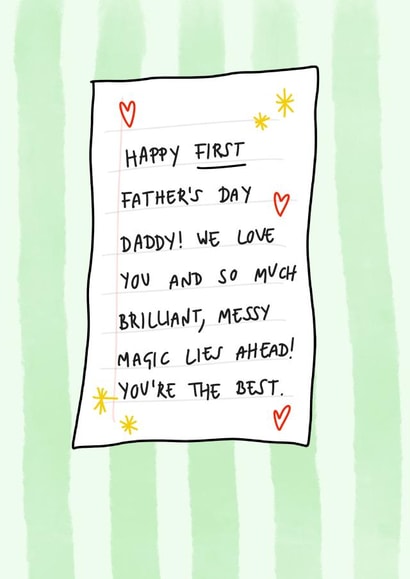 HAPPY FIRST
FATHER'S DAY
DADDY! WE LOVE
YOU AND SO MUCH
BRILLIANT, MESSY
MAGIC LIES AHEAD!
YOU'RE THE BEST.